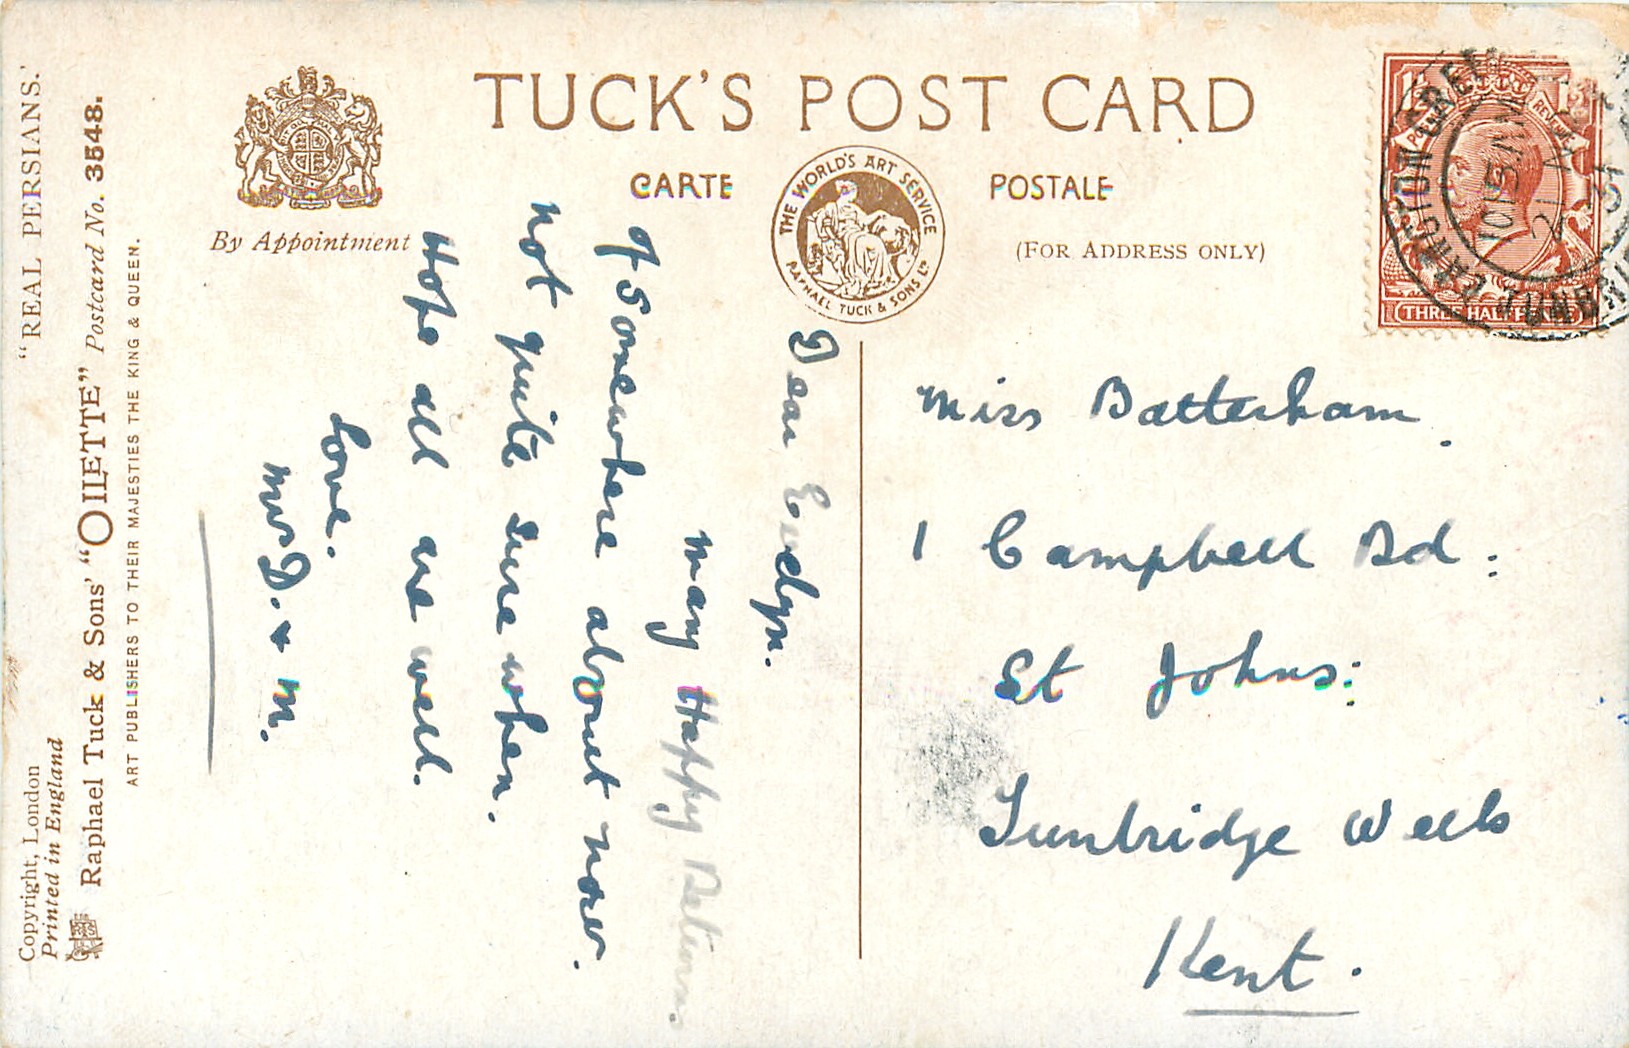 TUCK'S POST CARD
CARTE POSTALE
By Appointment
THE WORLD'S ART SERVICE
RAPHAEL TUCK & SONS LD
(FOR ADDRESS ONLY)
"REAL PERSIANS."
Raphael Tuck & Sons' "OILETTE" Postcard No. 3548.
ART PUBLISHERS TO THEIR MAJESTIES THE KING & QUEEN.
Copyright, London
Printed in England
Dear Evelyn.
Many Happy Returns.
of Somewhere about now.
Not quite sure when.
Hope all are well.
Love.
Mrs D. & M.
Miss Batterham.
1 Campbell Rd:
St Johns:
Tunbridge Wells
Kent.
REVENUE
THREE HALF PENCE
1015AM